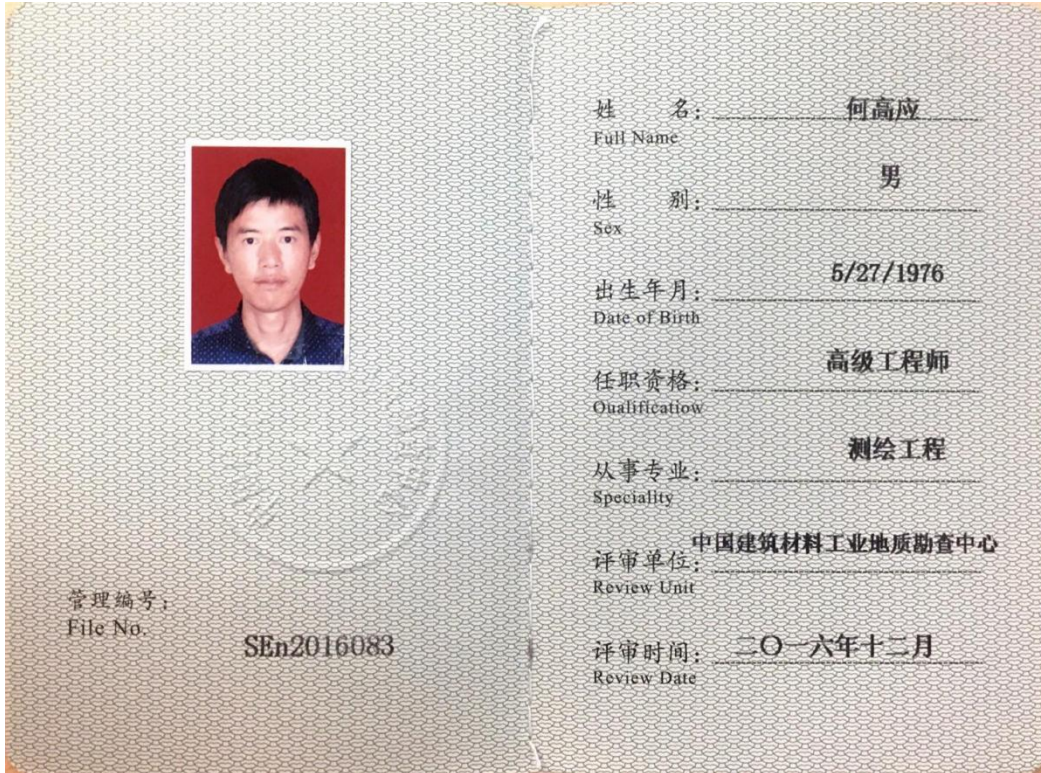 管理编号:
File No.
SEn2016083
姓 名: 何高应
Full Name
性 别: 男
Sex
出生年月: 5/27/1976
Date of Birth
任职资格: 高级工程师
Oualificatiow
从事专业: 测绘工程
Speciality
评审单位: 中国建筑材料工业地质勘查中心
Review Unit
评审时间: 二〇一六年十二月
Review Date